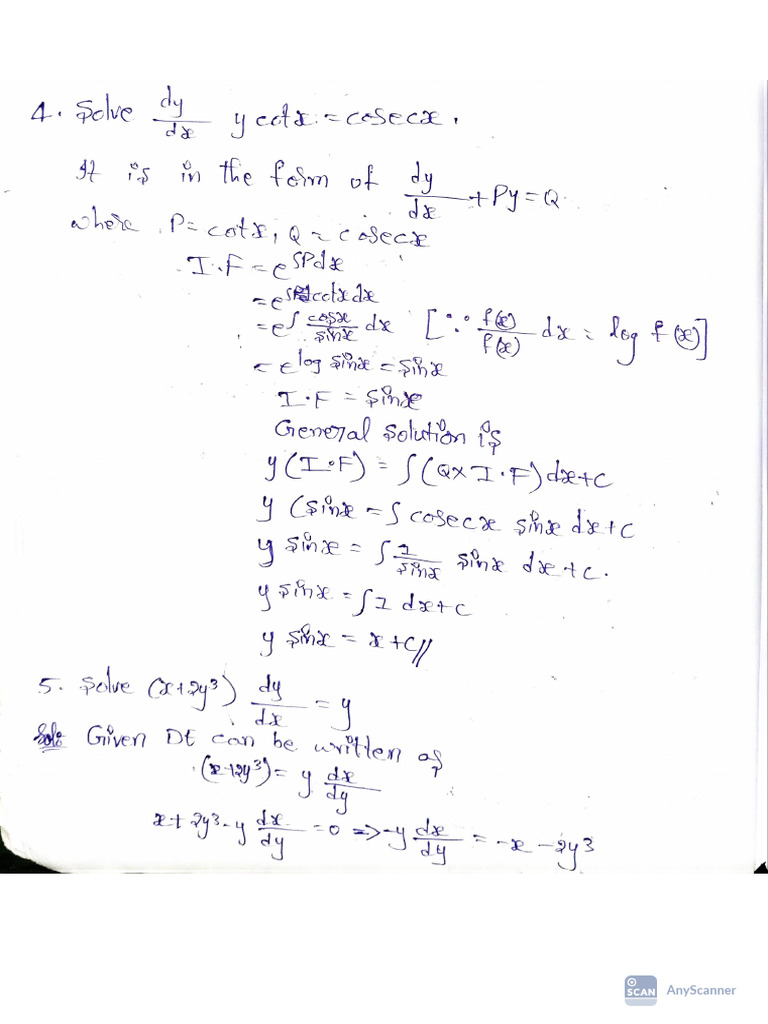 4. Solve dy/dx y cotx = cosecx.
It is in the form of dy/dx + Py = Q
where P = cotx, Q = cosecx
I.F = e^∫Pdx
= e^∫cotxdx
= e^∫ cosx/sinx dx [∵ f(x)/f(x) dx = log f(x)]
= e^log sinx = sinx
I.F = sinx
General solution is
y (I.F) = ∫(Q×I.F) dx+c
y (sinx = ∫ cosecx sinx dx+c
y sinx = ∫ 1/sinx sinx dx+c.
y sinx = ∫1 dx+c
y sinx = x+c//
5. Solve (x+2y³) dy/dx = y
Sol: Given DE can be written as
(x+2y³) = y dx/dy
x+2y³-y dx/dy = 0 => -y dx/dy = -x-2y³
SCAN AnyScanner